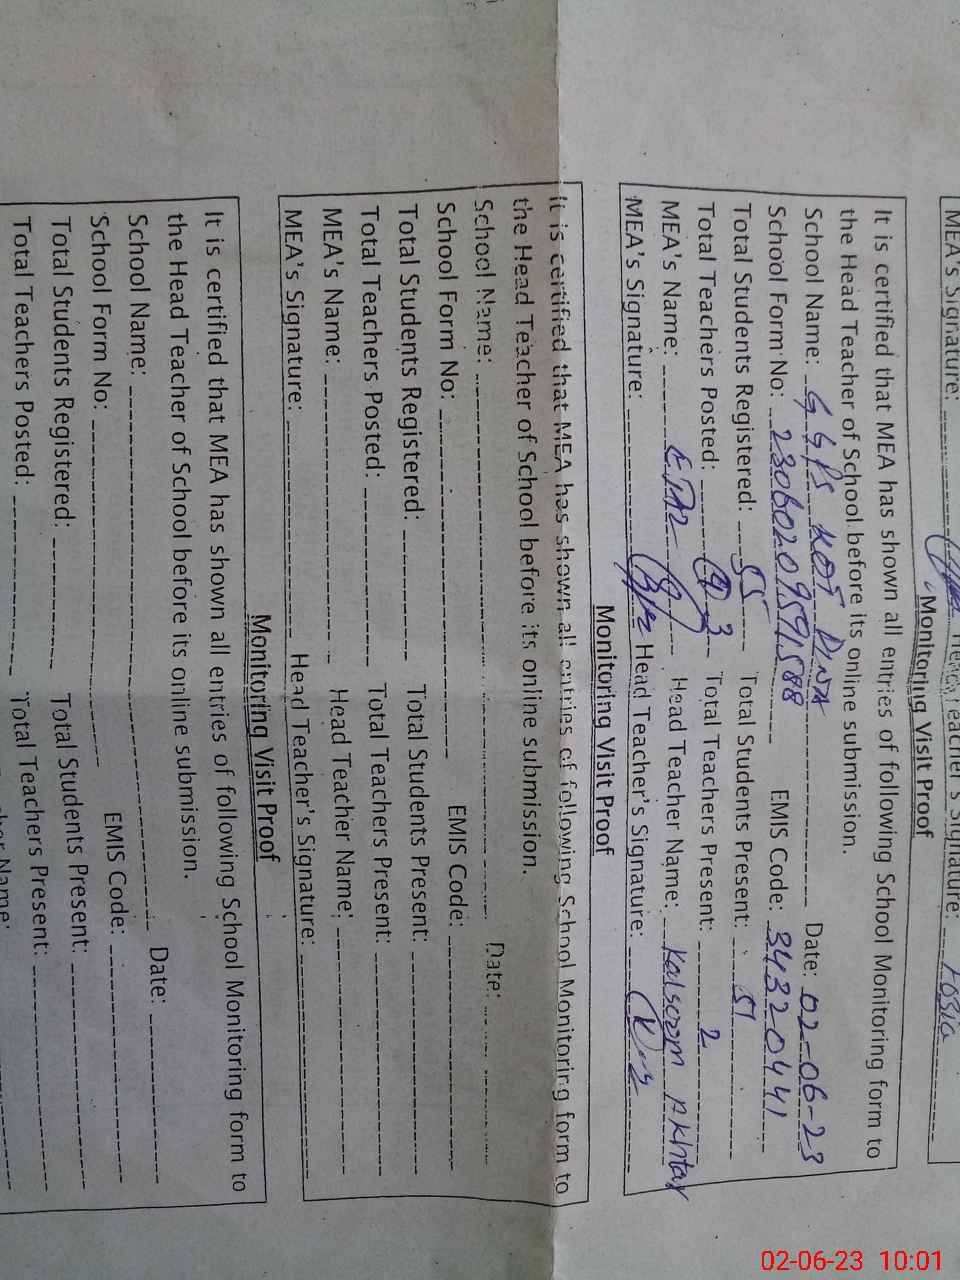 MEA's Signature: Head Teacher's Signature:
Monitoring Visit Proof
It is certified that MEA has shown all entries of following School Monitoring form to
the Head Teacher of School before its online submission.
School Name: GGPS KOT DINA Date: 02-06-23
School Form No: 23060209591588 EMIS Code: 34320441
Total Students Registered: 55 Total Students Present: 51
Total Teachers Posted: 3 Total Teachers Present: 2
MEA's Name: Head Teacher Name: Kalsoom Akhtar
MEA's Signature: Head Teacher's Signature:
Monitoring Visit Proof
It is certified that MEA has shown all entries of following School Monitoring form to
the Head Teacher of School before its online submission.
School Name: Date:
School Form No: EMIS Code:
Total Students Registered: Total Students Present:
Total Teachers Posted: Total Teachers Present:
MEA's Name: Head Teacher Name:
MEA's Signature: Head Teacher's Signature:
Monitoring Visit Proof
It is certified that MEA has shown all entries of following School Monitoring form to
the Head Teacher of School before its online submission.
School Name: Date:
School Form No: EMIS Code:
Total Students Registered: Total Students Present:
Total Teachers Posted: Total Teachers Present:
02-06-23 10:01